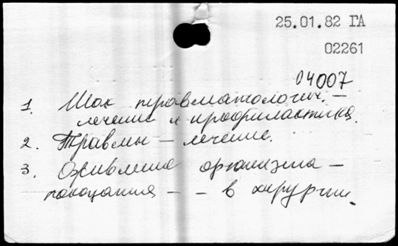 25.01.82 ГА
02261
04007
1. Шок травматологич. –
лечение и профилактика.
2. Травмы – лечение.
3. Оживление организма –
показания – – в хирургии.